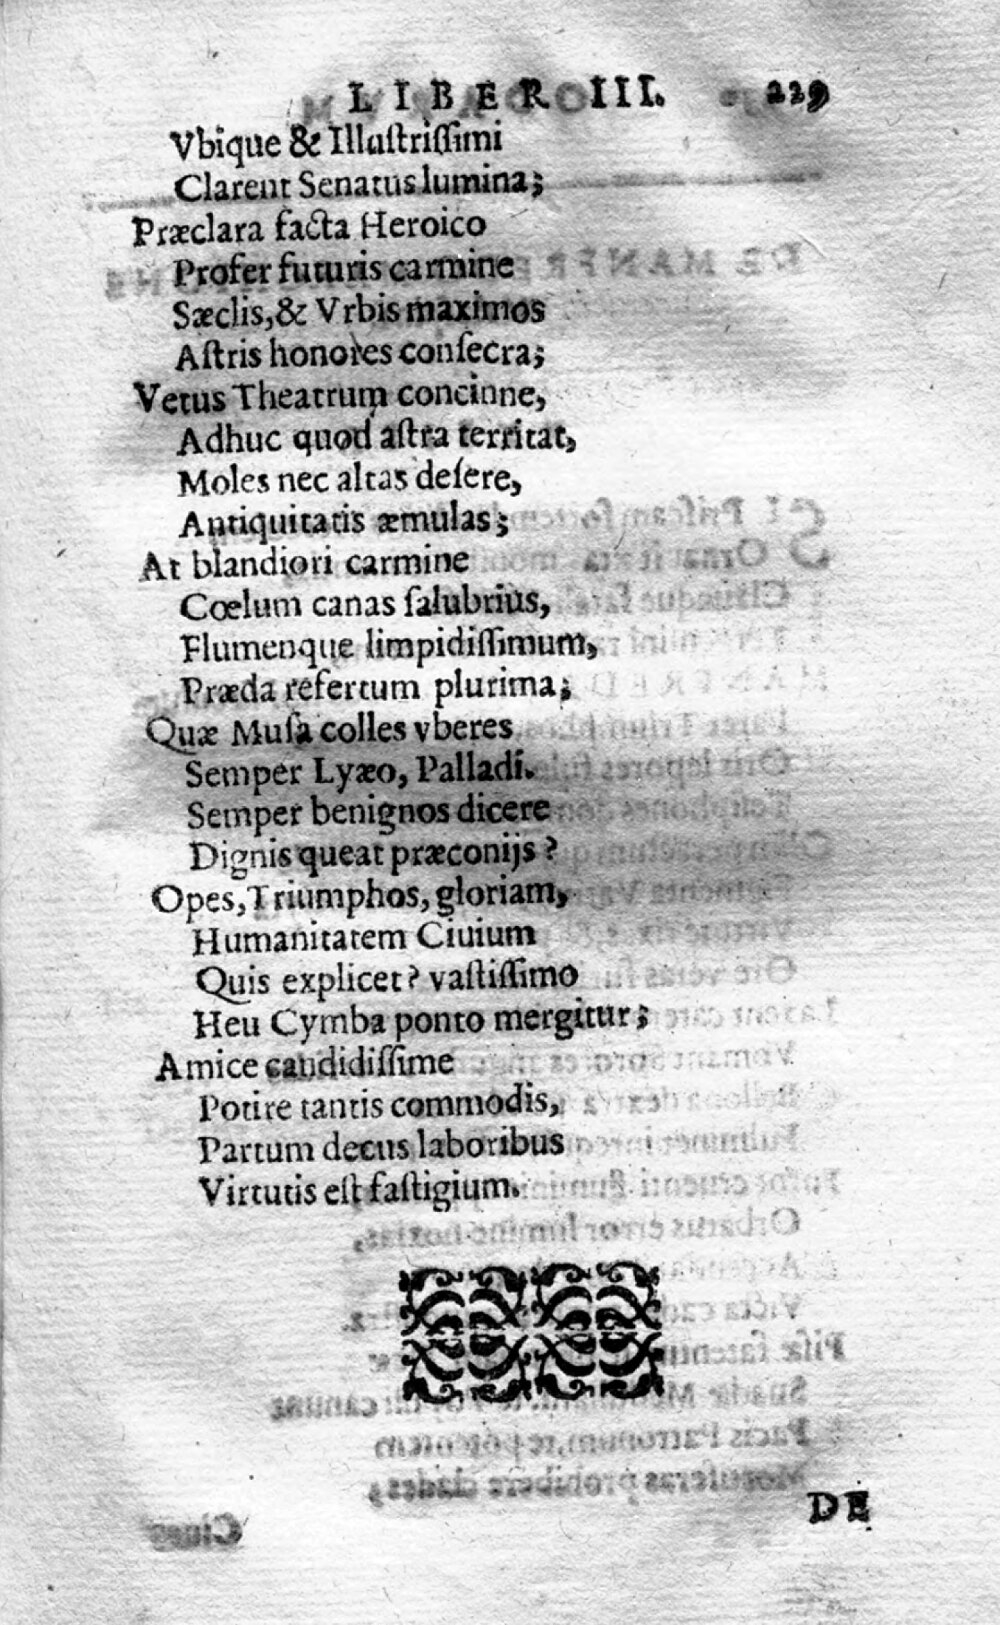 LIBER III. 229
Vbique & Illuſtriſſimi
Clarent Senatus lumina;
Præclara facta Heroico
Profer futuris carmine
Sæclis, & Vrbis maximos
Aſtris honores conſecra;
Vetus Theatrum concinne,
Adhuc quod aſtra territat,
Moles nec altas deſere,
Antiquitatis æmulas;
At blandiori carmine
Cœlum canas ſalubrius,
Flumenque limpidiſſimum,
Præda refertum plurima;
Quæ Muſa colles vberes
Semper Lyæo, Palladi.
Semper benignos dicere
Dignis queat præconijs?
Opes, Triumphos, gloriam,
Humanitatem Ciuium
Quis explicet? vaſtiſſimo
Heu Cymba ponto mergitur;
Amice candidiſſime
Potire tantis commodis,
Partum decus laboribus
Virtutis eſt faſtigium.
DE